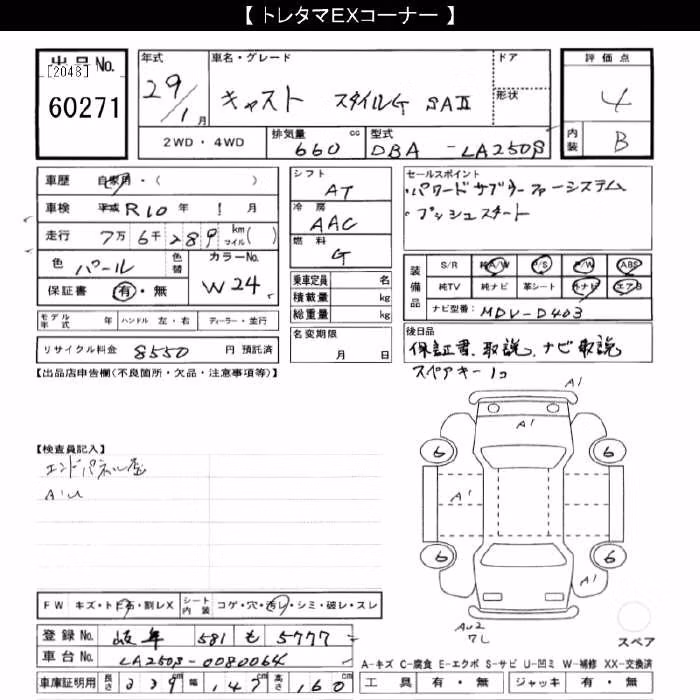 【 トレタマEXコーナー 】
出品No.
[2048]
60271
年式
29/1月
車名・グレード
キャスト スタイルG SAⅡ
ドア
形状
評価点
4
内装
B
2WD・4WD
排気量 660 cc
型式 DBA - LA250S
車歴 自家用・( )
車検 平成 R10年 1月
走行 7万6千289 km マイル( )
色 パール
色替
カラーNo. W24
保証書 有・無
シフト AT
冷房 AAC
燃料 G
乗車定員 名
積載量 kg
総重量 kg
セールスポイント
・パワードサブウーファーシステム
・プッシュスタート
装備品
S/R 純A/W P/S P/W ABS
純TV 純ナビ 革シート 外ナビ エアB
ナビ型番: MDV-D403
モデル年式 年 ハンドル 左・右 ディーラー・並行
リサイクル料金 8550 円 預託済
名変期限
月 日
後日品
保証書、取説、ナビ取説
スペアキー1コ
【出品店申告欄(不良箇所・欠品・注意事項等)】
【検査員記入】
エンドパネル歪
A'U
A1
A1
6 6
A1
6 6
A1
AU2
スペア
FW キズ・トビ石・割レX
シート内装 コゲ・穴・汚レ・シミ・破レ・スレ
登録No. 岐阜 581 も 5777
車台No. LA250S-0080064
車庫証明用 長さ 339cm 幅 147cm 高さ 160cm
A-キズ C-腐食 E-エクボ S-サビ U-凹ミ W-補修 XX-交換済
工具 有・無 ジャッキ 有・無